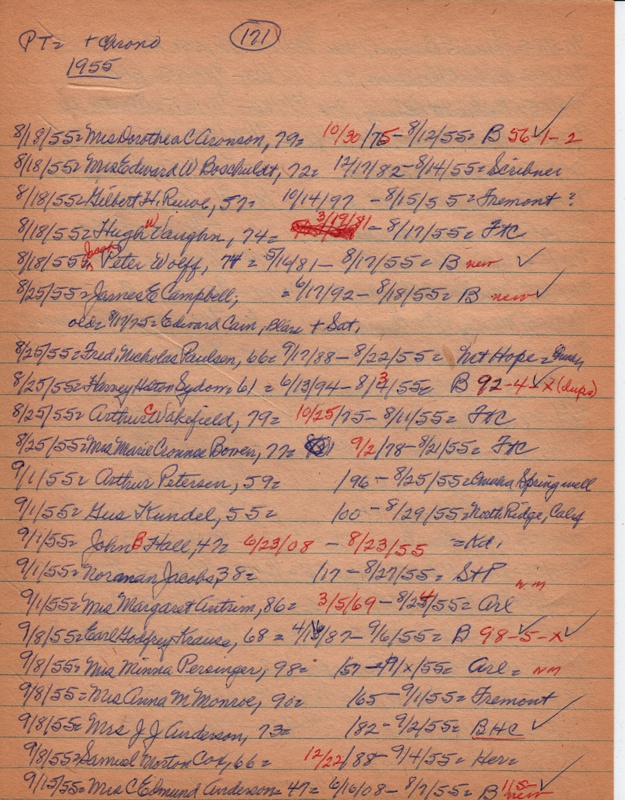 PT= + Chrono (121)
1955
8/18/55= Mrs Dorothea C Aronson, 79= 10/30/75-8/12/55= B 56-1-2
8/18/55= Mrs Edward W Boschuldt, 72= 12/17/82-8/14/55= Scribner
8/18/55= Gilbert H. 57= 10/14/97 -8/15/55= Fremont ?
8/18/55= Hugh W Vaughn, 74= 3/19/81 - 8/17/55= FtC
8/18/55= Jacob Peter Wolff, 74= 5/16/81 - 8/17/55= B new
8/25/55= James E Campbell, = 6/17/92-8/18/55= B new
old= 9/17/75= Edward Cain, Blase + Sat.
8/25/55= Fred Nicholas Paulsen, 66= 9/17/88-8/22/55= Mt Hope =
8/25/55= Harvey Hilton Sydom= 61= 6/13/94-8/3/55= B 92-4-X (dups)
8/25/55= Arthur E Wakefield, 79= 10/25/75-8/11/55= FtC
8/25/55= Mrs Marie Bowen, 77= 9/2/78-8/21/55= FtC
9/1/55= Arthur Petersen, 59= /96-8/25/55= Omaha Springwell
9/1/55= Gus Kundel, 55= /00-8/29/55= North Ridge, Calif
9/1/55= John B Hall, 47= 6/23/08 - 8/23/55 =Kd.
9/1/55= Norman Jacobs, 38= /17-8/27/55= StP
9/1/55= Mrs Margaret Antrim, 86= 3/5/69-8/24/55= Arl nm
9/8/55= Earl Godfrey Krause, 68= 4/18/87-9/6/55= B 98-5-X
9/8/55= Mrs Minna Persinger, 98= /57-9/1x/55= Arl = nm
9/8/55= Mrs Anna M Monroe, 90= /65-9/1/55= Fremont
9/8/55= Mrs J J Anderson, 73= /82-9/2/55= BHC
9/8/55= Samuel Morton Cox, 66= 12/22/88-9/4/55= Her=
9/15/55= Mrs C Edmund Anderson= 47= 6/16/08-8/7/55= B new